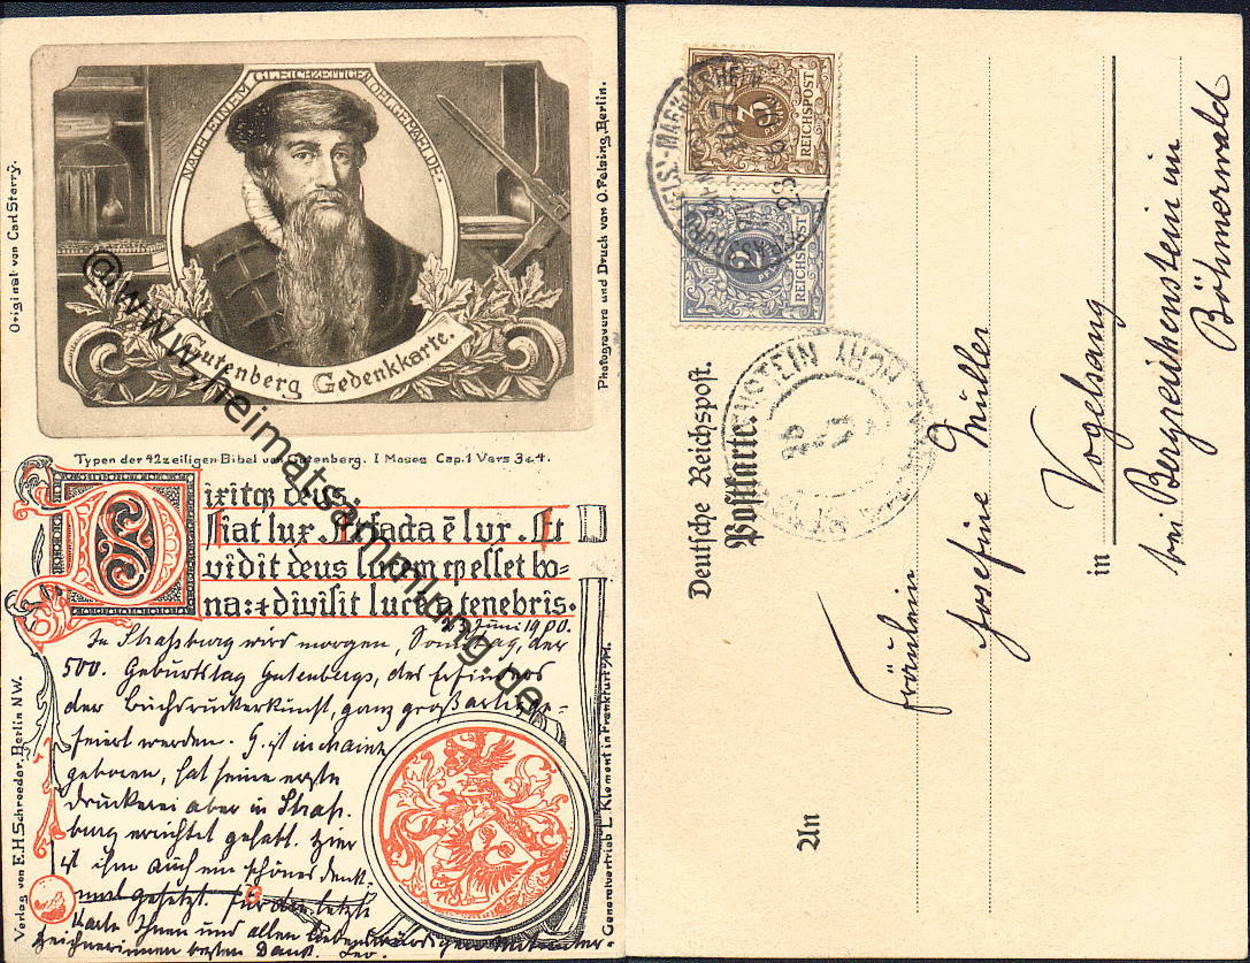 NACH EINEM GLEICHZEITIGEN OELGEMÄLDE.
Gutenberg Gedenkkarte.
Original von Carl Sterry.
Photogravure und Druck von O. Felsing, Berlin.
Typen der 42zeiligen Bibel von Gutenberg. I Moses Cap. 1 Vers 3 & 4.
Dixitqz deus.
Fiat lux. Et facta ē lux. Et
vidit deus lucem qz esset bo-
na: et divisit lucem a tenebris.
23. Juni 1900.
In Straßburg wird morgen, Sonntag, der
500. Geburtstag Gutenbergs, des Erfinders
der Buchdruckerkunst, ganz großartig ge-
feiert werden. G. ist in Mainz
geboren, hat seine erste
Druckerei aber in Straß-
burg errichtet gehabt. Hier
ist ihm auch ein schönes Denk-
mal gesetzt. Für die letzte
Karte Ihnen und allen liebenswürdigen Mitunter-
zeichnerinnen besten Dank. Leo.
Verlag von E.H. Schroeder, Berlin NW.
Generalvertrieb L. Klement in Frankfurt a/M.
@www.heimatsammlung.de
3
PFENNIG
REICHSPOST
2
PFENNIG
REICHSPOST
Deutsche Reichspost.
Postkarte.
An
Fräulein
Josefine Müller
in Vogelsang
bei Bergreichenstein im
Böhmerwald